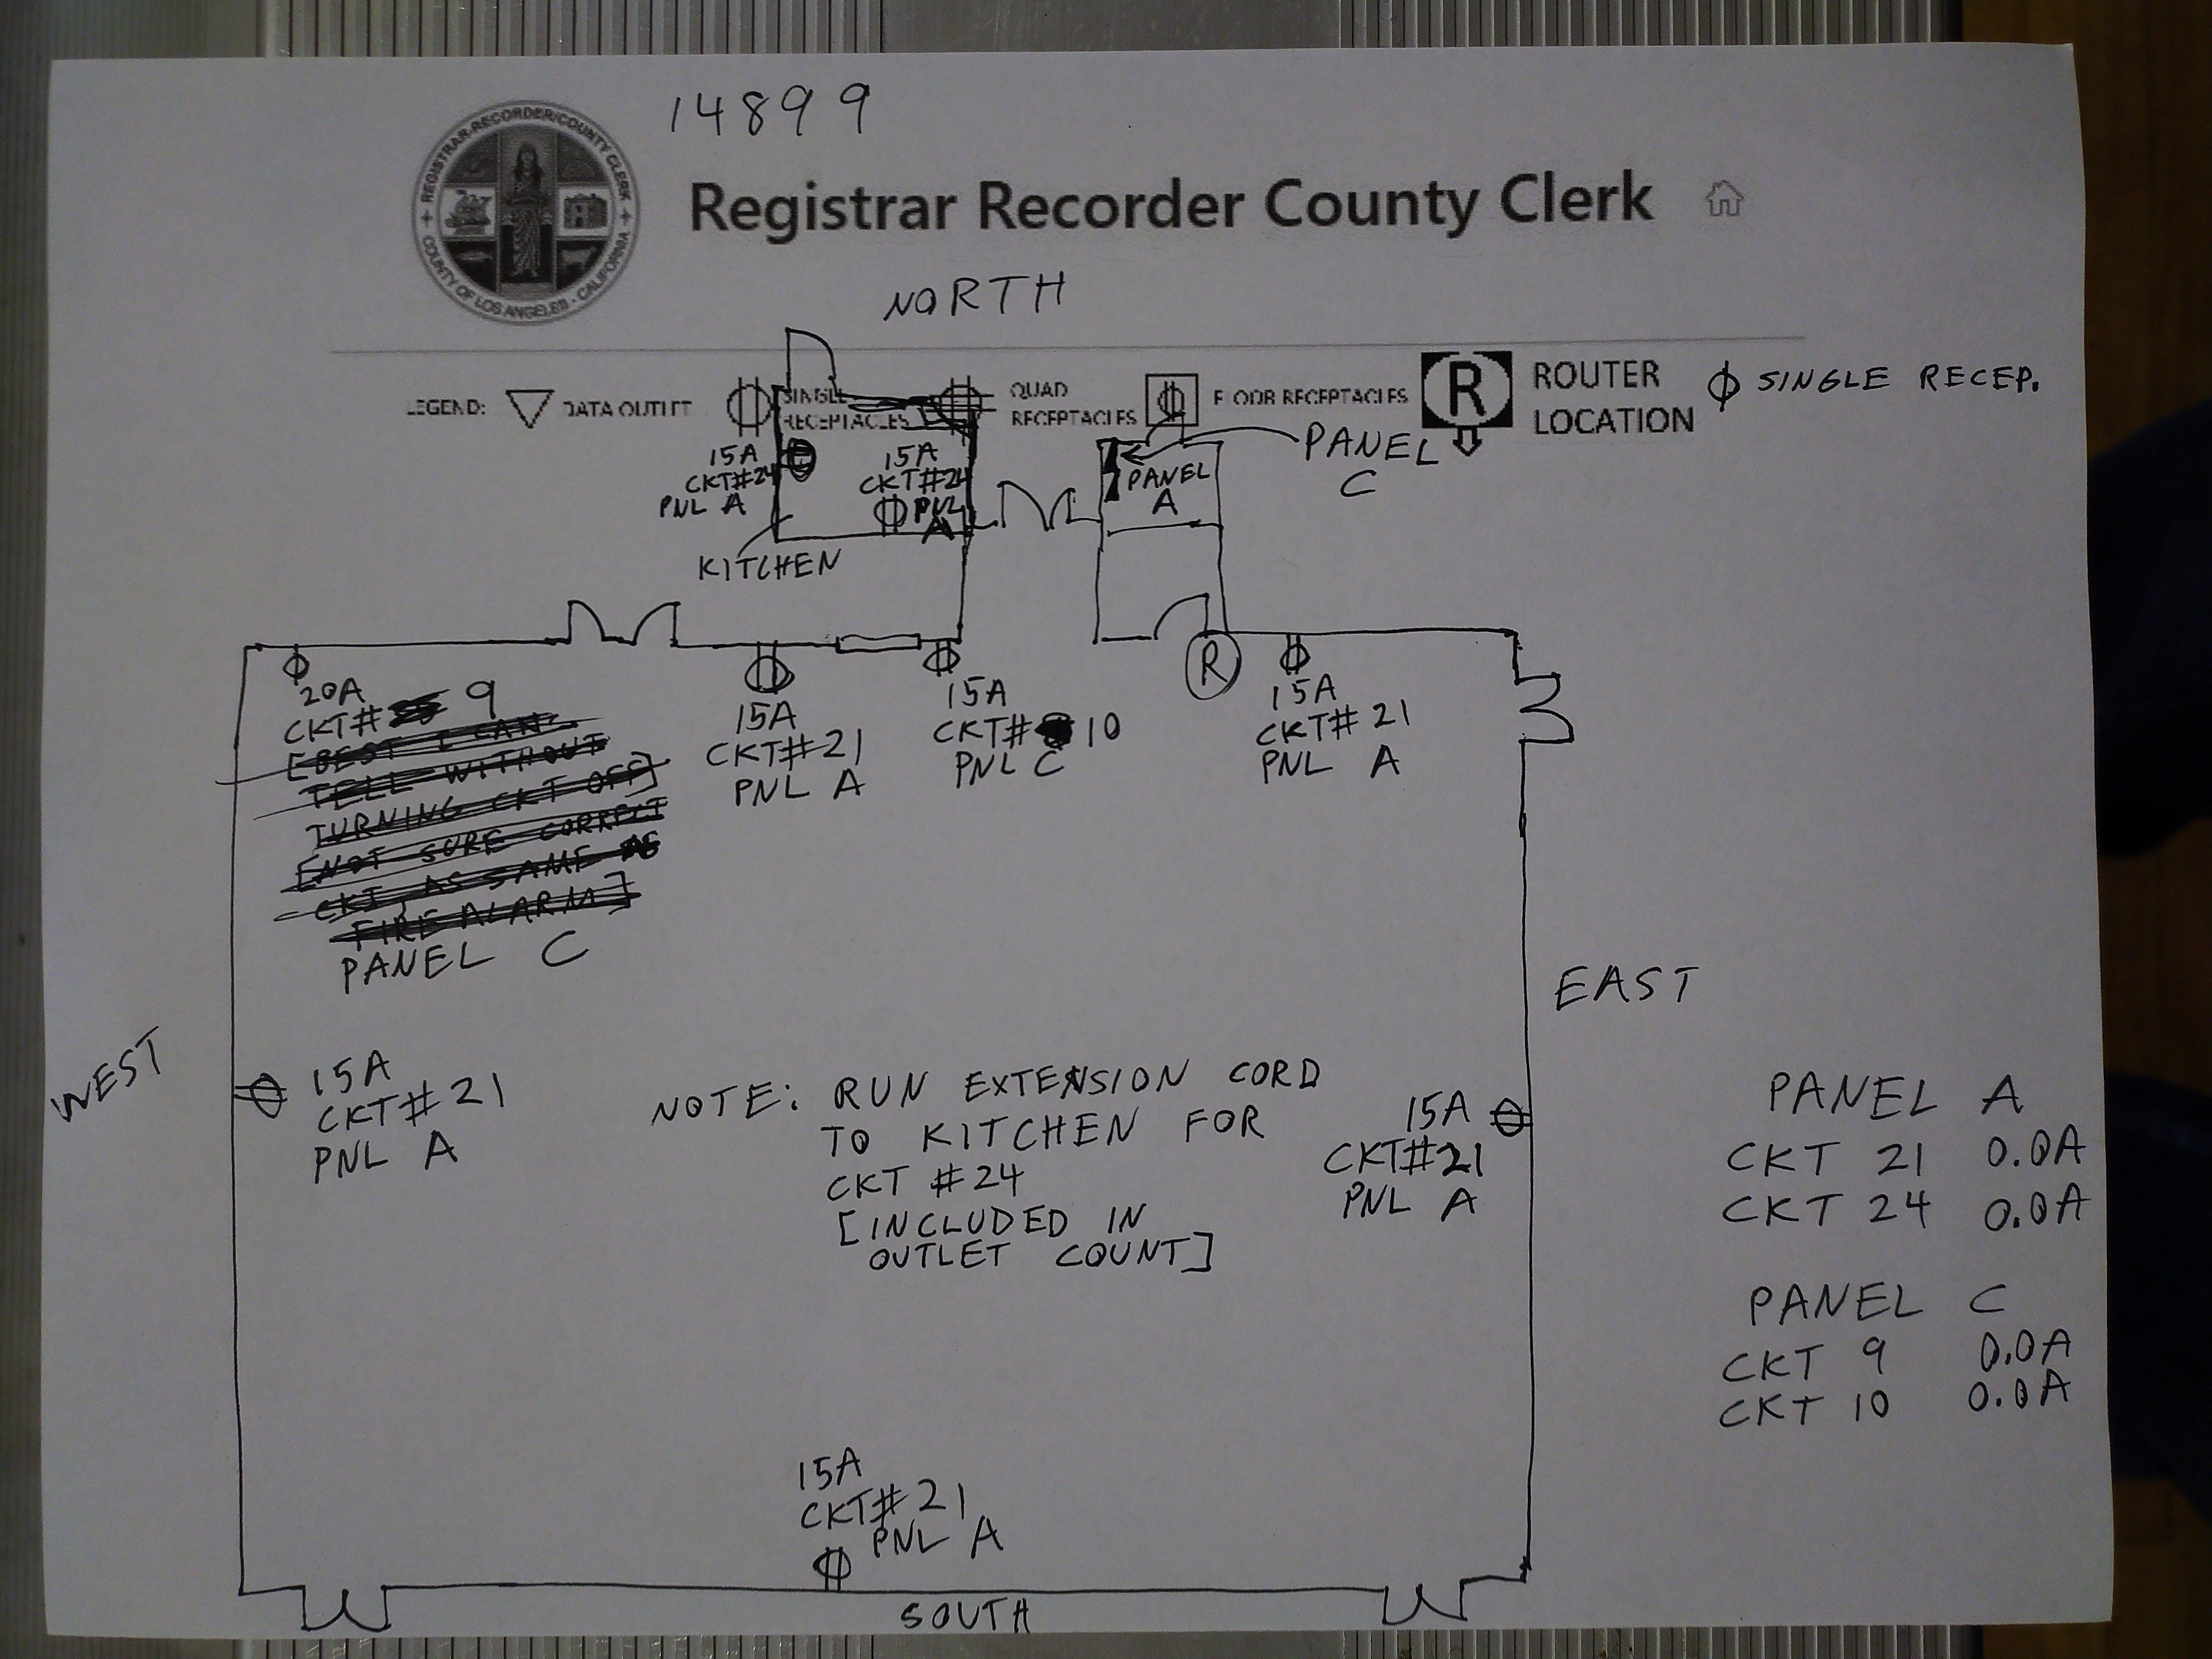 14899
REGISTRAR-RECORDER/COUNTY CLERK
COUNTY OF LOS ANGELES - CALIFORNIA
Registrar Recorder County Clerk
NORTH
LEGEND:
DATA OUTLET
SINGLE
RECEPTACLES
QUAD
RECEPTACLES
FLOOR RECEPTACLES
R
ROUTER
LOCATION
SINGLE RECEP.
15A
CKT#24
PNL A
15A
CKT#24
PNL
A
KITCHEN
PANEL
A
PANEL
C
20A
CKT# 9
[BEST I CAN
TELL WITHOUT
TURNING CKT OFF]
[NOT SURE CORRECT
CKT, AS SAME AS
FIRE ALARM]
PANEL C
15A
CKT#21
PNL A
15A
CKT# 10
PNL C
R
15A
CKT# 21
PNL A
WEST
EAST
15A
CKT# 21
PNL A
NOTE: RUN EXTENSION CORD
TO KITCHEN FOR
CKT #24
[INCLUDED IN
OUTLET COUNT]
15A
CKT#21
PNL A
PANEL A
CKT 21 0.0A
CKT 24 0.0A
PANEL C
CKT 9 0.0A
CKT 10 0.0A
15A
CKT# 21
PNL A
SOUTH